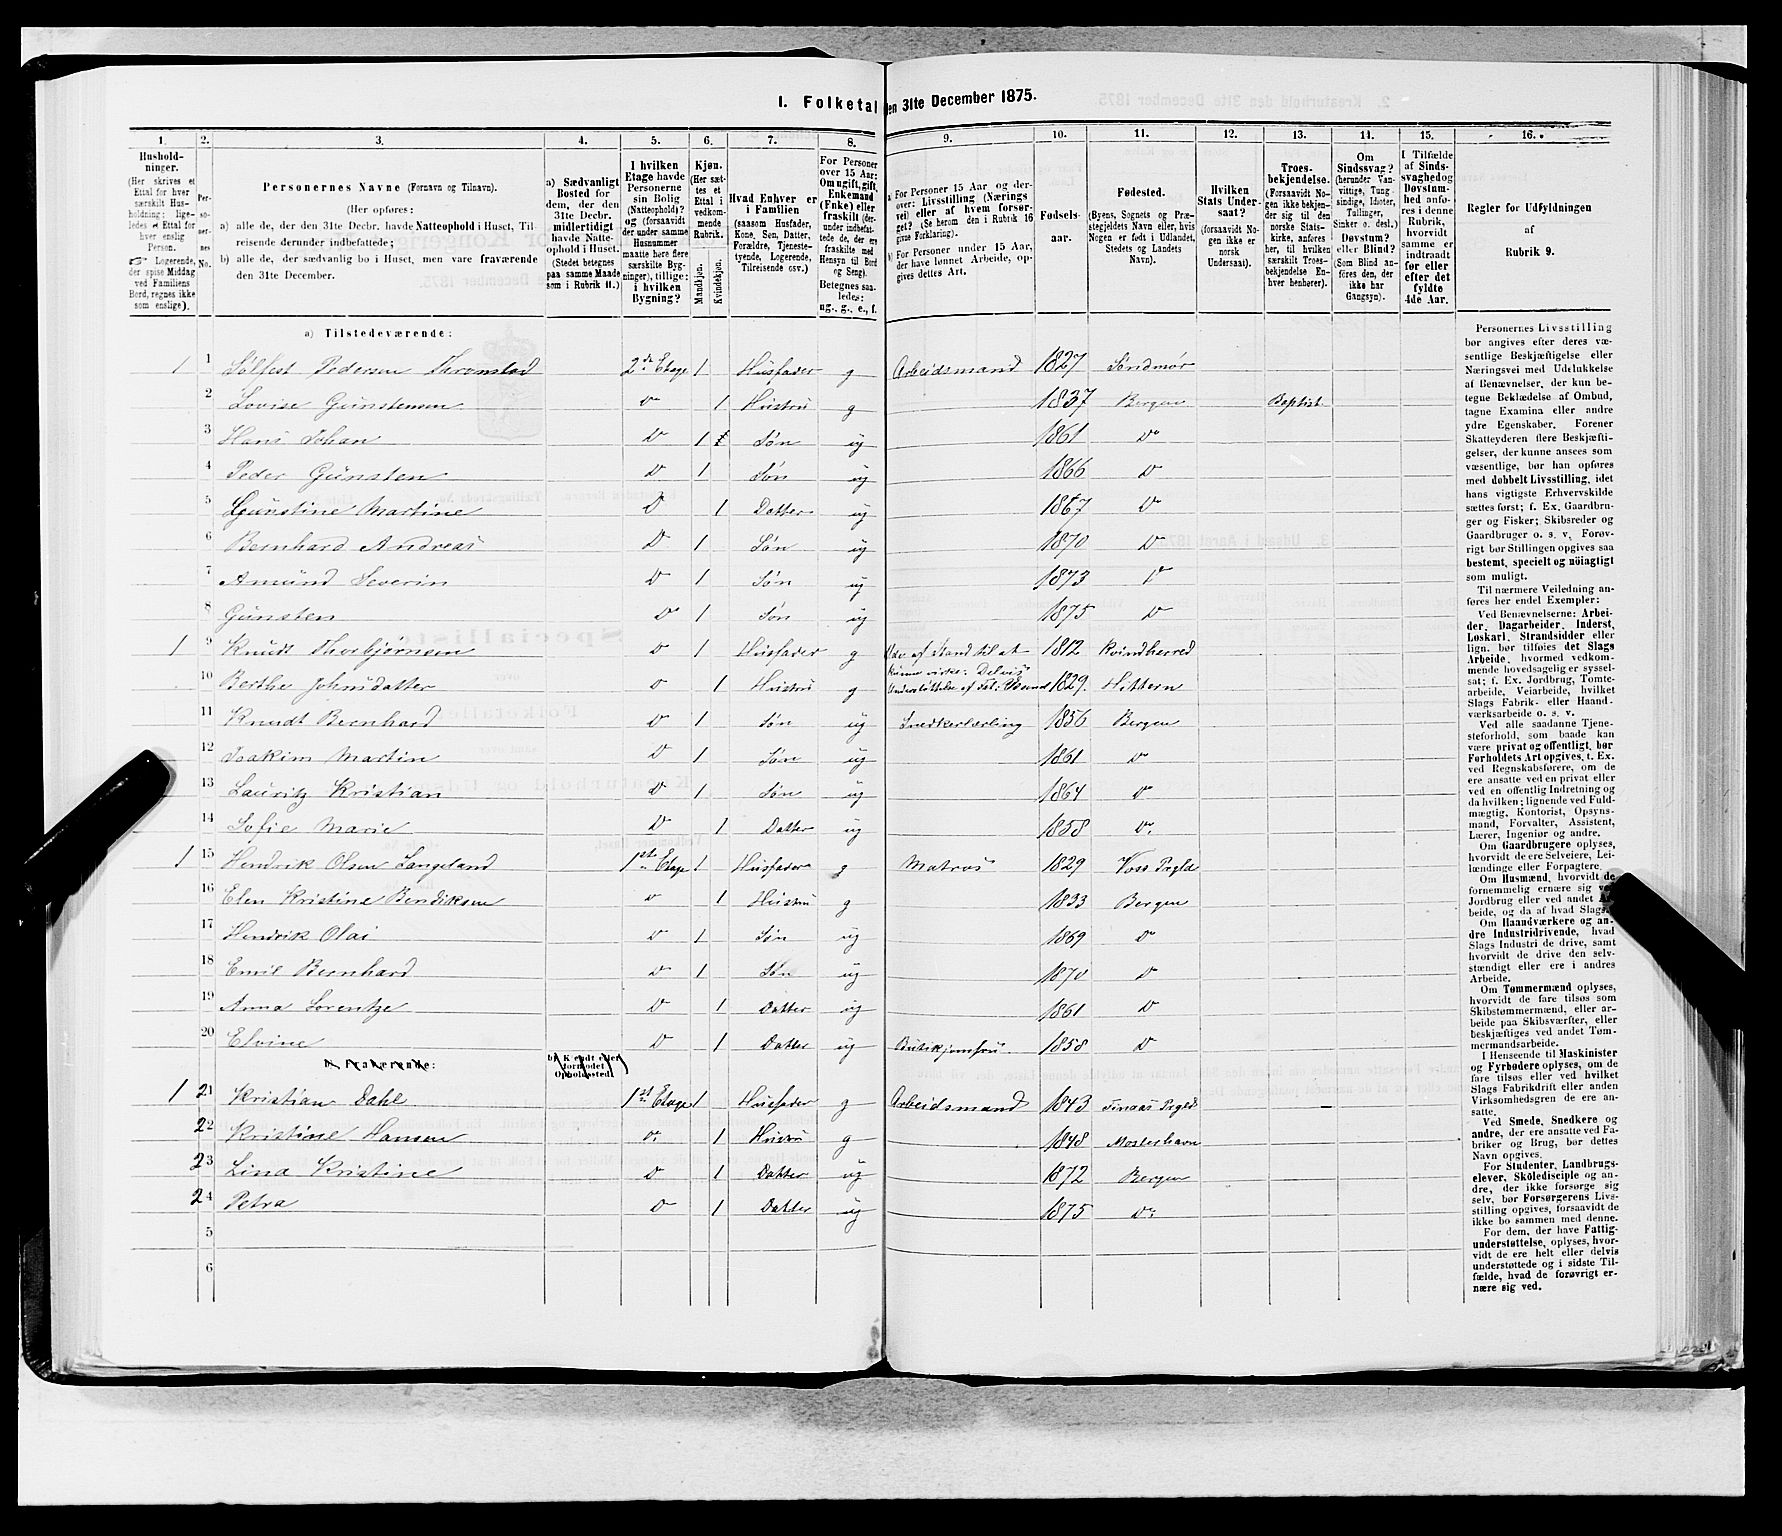 1. Folketal den 31te December 1875.
1. 2. 3. 4. 5. 6. 7. 8. 9. 10. 11. 12. 13. 14. 15. 16.
Husholdninger.
(Her skrives et
Ettal for hver
særskilt Husholdning;
ligeledes et Ettal for
hver enslig
Person.
☞ Logerende,
der spise Middag
ved Familiens
Bord, regnes ikke
som enslige).
Personernes No.
Personernes Navne (Fornavn og Tilnavn).
(Her opføres:
a) alle de, der den 31te Decbr. havde Natteophold i Huset, Tilreisende derunder indbefattede;
b) alle de, der sædvanlig bo i Huset, men vare fraværende
den 31te December.
a) Sædvanligt
Bosted for
dem, der den
31te Decbr.
midlertidigt
havde Natteophold i Huset.
(Stedet betegnes
paa samme Maade
som i Rubrik 11.)
I hvilken
Etage havde
Personerne
sin Bolig
(Natteophold)?
og (forsaavidt
der under samme
Husnummer
maatte høre flere
særskilte Bygninger), tillige:
i hvilken
Bygning?
Kjøn.
(Her sættes et
Ettal i
vedkommende
Rubrik.
Mandkjøn.
Kvindekjøn.
Hvad Enhver er
i Familien
(saasom Husfader,
Kone, Søn, Datter,
Forældre, Tjenestetyende, Logerende,
Tilreisende osv.)
For Personer
over 15 Aar:
Om ugift, gift,
Enkemand
(Enke) eller
fraskilt (derunder indbefattede de, der ere
fraskilte med
Hensyn til Bord
og Seng).
Betegnes saaledes:
ug., g., e., f.
a) For Personer 15 Aar og derover: Livsstilling (Næringsvei) eller af hvem forsørget? (Se herom den i Rubrik 16
givne Forklaring).
b) For Personer under 15 Aar,
der have lønnet Arbeide, opgives dettes Art.
Fødselsaar.
Fødested.
(Byens, Sognets og Præstegjeldets Navn eller, hvis
Nogen er født i Udlandet,
Stedets og Landets
Navn).
Hvilken
Stats Undersaat?
(forsaavidt Nogen ikke er
norsk
Undersaat).
Troesbekjendelse.
(Forsaavidt Nogen ikke bekjender sig til den
norske Statskirke, anføres,
til hvilken
særskilt Troesbekjendelse Enhver henhører).
Om
Sindssvag?
(herunder Vanvittige, Tungsindige, Idioter,
Tullinger,
Sinker o. desl.)
Døvstum?
eller Blind?
(Som Blind anføres den, der
ikke har
Gangsyn).
I Tilfælde
af Sindssvaghed og
Døvstumhed anføres i denne
Rubrik,
hvorvidt
samme er
indtraadt
før eller
efter det
fyldte
4de Aar.
Regler for Udfyldningen
af
Rubrik 9.
a) Tilstedeværende:
1 1 Sølfest Pedersen 2de Etage 1 Husfader g Arbeidsmand 1827 Søndmør
2 Lovise Günstensen Do 1 Hustrü g 1837 Bergen Baptist
3 Hans Johan D 1 Søn ug 1861 Do
4 Peder Günsten D 1 Søn ug 1866 D
5 Günstine Martine D 1 Datter ug 1867 D
6 Bernhard Andreas D 1 Søn ug 1870 D
7 Amünd Severin D 1 Søn ug 1873 Do
8 Günsten Do 1 Søn ug 1875 D
1 9 Knudt Thorbjørnsen D 1 Husfader g Ude af Stand til at 1812 Kvindherred
kunne virke: Delvis
10 Berthe Johnsdatter D 1 Hustrü g Understøttelse af 1829 Hittern
11 Knudt Bernhard D 1 Søn ug Snedkerlærling 1856 Bergen
12 Joakim Martin D 1 Søn ug 1861 Do
13 Lauritz Kristian D 1 Søn ug 1864 Do
14 Sofie Marie D 1 Datter ug 1858 Do
1 15 Hendrik Olsen Langeland 1ste Etage 1 Husfader g Matros 1829 Voss Prgld
16 Elen Kristine Bendiksen D 1 Hustrü g 1833 Bergen
17 Hendrik Olai D 1 Søn ug 1869 Do
18 Emil Bernhard D 1 Søn ug 1870 D
19 Anna Lorentze D 1 Datter ug 1861 D
20 Elvine D 1 Datter ug Butikjomfrü 1858 D
b) Fraværende: b) Kjendt eller
formodet
Opholdssted.
1 21 Kristian Dahl 1ste Etage 1 Husfader g Arbeidsmand 1843 Finaas Prgld
22 Kristine Hansen Do 1 Hustrü g 1848 Mosterhavn
23 Lina Kristine D 1 Datter ug 1872 Bergen
24 Petra D 1 Datter ug 1875 Do
5
6
Personernes Livsstilling
bør angives efter deres væsentlige Beskjæftigelse eller
Næringsvei med Udelukkelse
af Benævnelser, der kun betegne Beklædelse af Ombud,
tagne Examina eller andre
ydre Egenskaber. Forener
Skatteyderen flere Beskjæftigelser, der kunne ansees som
væsentlige, bør han opføres
med dobbelt Livsstilling, idet
hans vigtigste Erhvervskilde
sættes først; f. Ex. Gaardbruger og Fisker; Skibsreder og
Gaardbruger o. s. v. Forøvrigt bør Stillingen opgives saa
bestemt, specielt og nöiagtigt
som muligt.
Til nærmere Veiledning anføres her endel Exempler:
Ved Benævnelserne: Arbeider, Dagarbeider, Inderst,
Løskarl, Strandsidder eller
lign. bør tilføies det Slags
Arbeide, hvormed vedkommende hovedsagelig er sysselsat; f. Ex. Jordbrug, Tomtearbeide, Veiarbeide, hvilket
Slags Fabrik- eller Haandværksarbeide o. s. v.
Ved alle saadanne Tjenesteforhold, som baade kan
være privat og offentligt, bør
Forholdets Art opgives, t. Ex.
ved Regnskabsførere, om de
ere ansatte ved en privat eller
ved en offentlig Indretning og
da hvilken; lignende ved Fuldmægtig, Kontorist, Opsynsmand, Forvalter, Assistent,
Lærer, Ingeniør og andre.
Om Gaardbrugere oplyses,
hvorvidt de ere Selveiere, Leilændinge eller Forpagtere.
Om Husmænd, hvorvidt de
fornemmelig ernære sig ved
Jordbrug eller ved andet Arbeide, og da af hvad Slags.
Om Haandværkere og andre Industridrivende, hvad
Slags Industri de drive, samt
hvorvidt de drive den selvstændigt eller ere i andres
Arbeide.
Om Tømmermænd oplyses,
hvorvidt de fare tilsøs som
Skibstømmermænd, eller arbeide paa Skibsværfter, eller
beskjæftiges ved andet Tømmermandsarbeide.
I Henseende til Maskinister
og Fyrbødere oplyses, om de
fare tilsøs eller ved hvilket
Slags Fabrikdrift eller anden
Virksomhedsgren de ere ansatte.
Ved Smede, Snedkere og
andre, der ere ansatte ved Fabriker og Brug, bør dettes
Navn opgives.
For Studenter, Landbrugselever, Skoledisciple og andre, der ikke forsørge sig
selv, bør Forsørgerens Livsstilling opgives, forsaavidt de
ikke bo sammen med denne.
For dem, der have Fattigunderstøttelse, oplyses, hvorvidt de ere helt eller delvis
understøttede og i sidste Tilfælde, hvad de forøvrigt ernære sig ved.